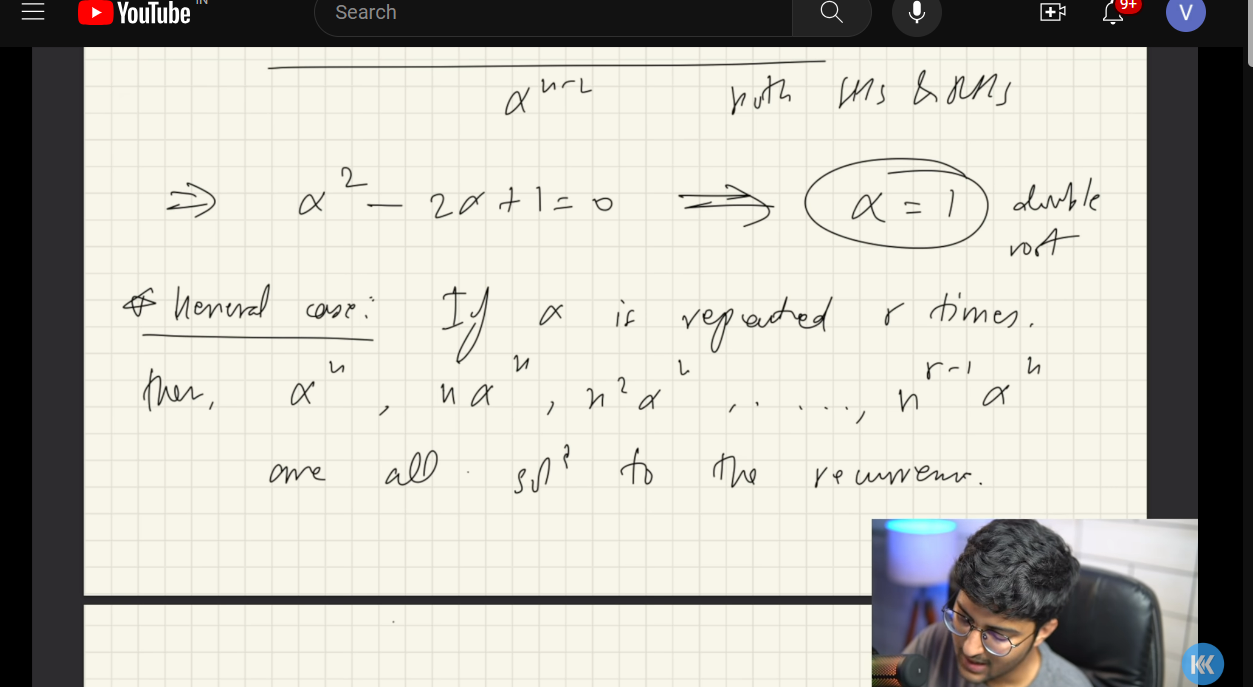 YouTube IN Search 9+ V
α^(n-2) both LHS & RHS
⇒ α² - 2α + 1 = 0 ⟹ α = 1 double
root
* General case: If α is repeated r times.
then, α^n, nα^n, n²α^n, . . . ., n^(r-1) α^n
are all solⁿ to the recurrence.